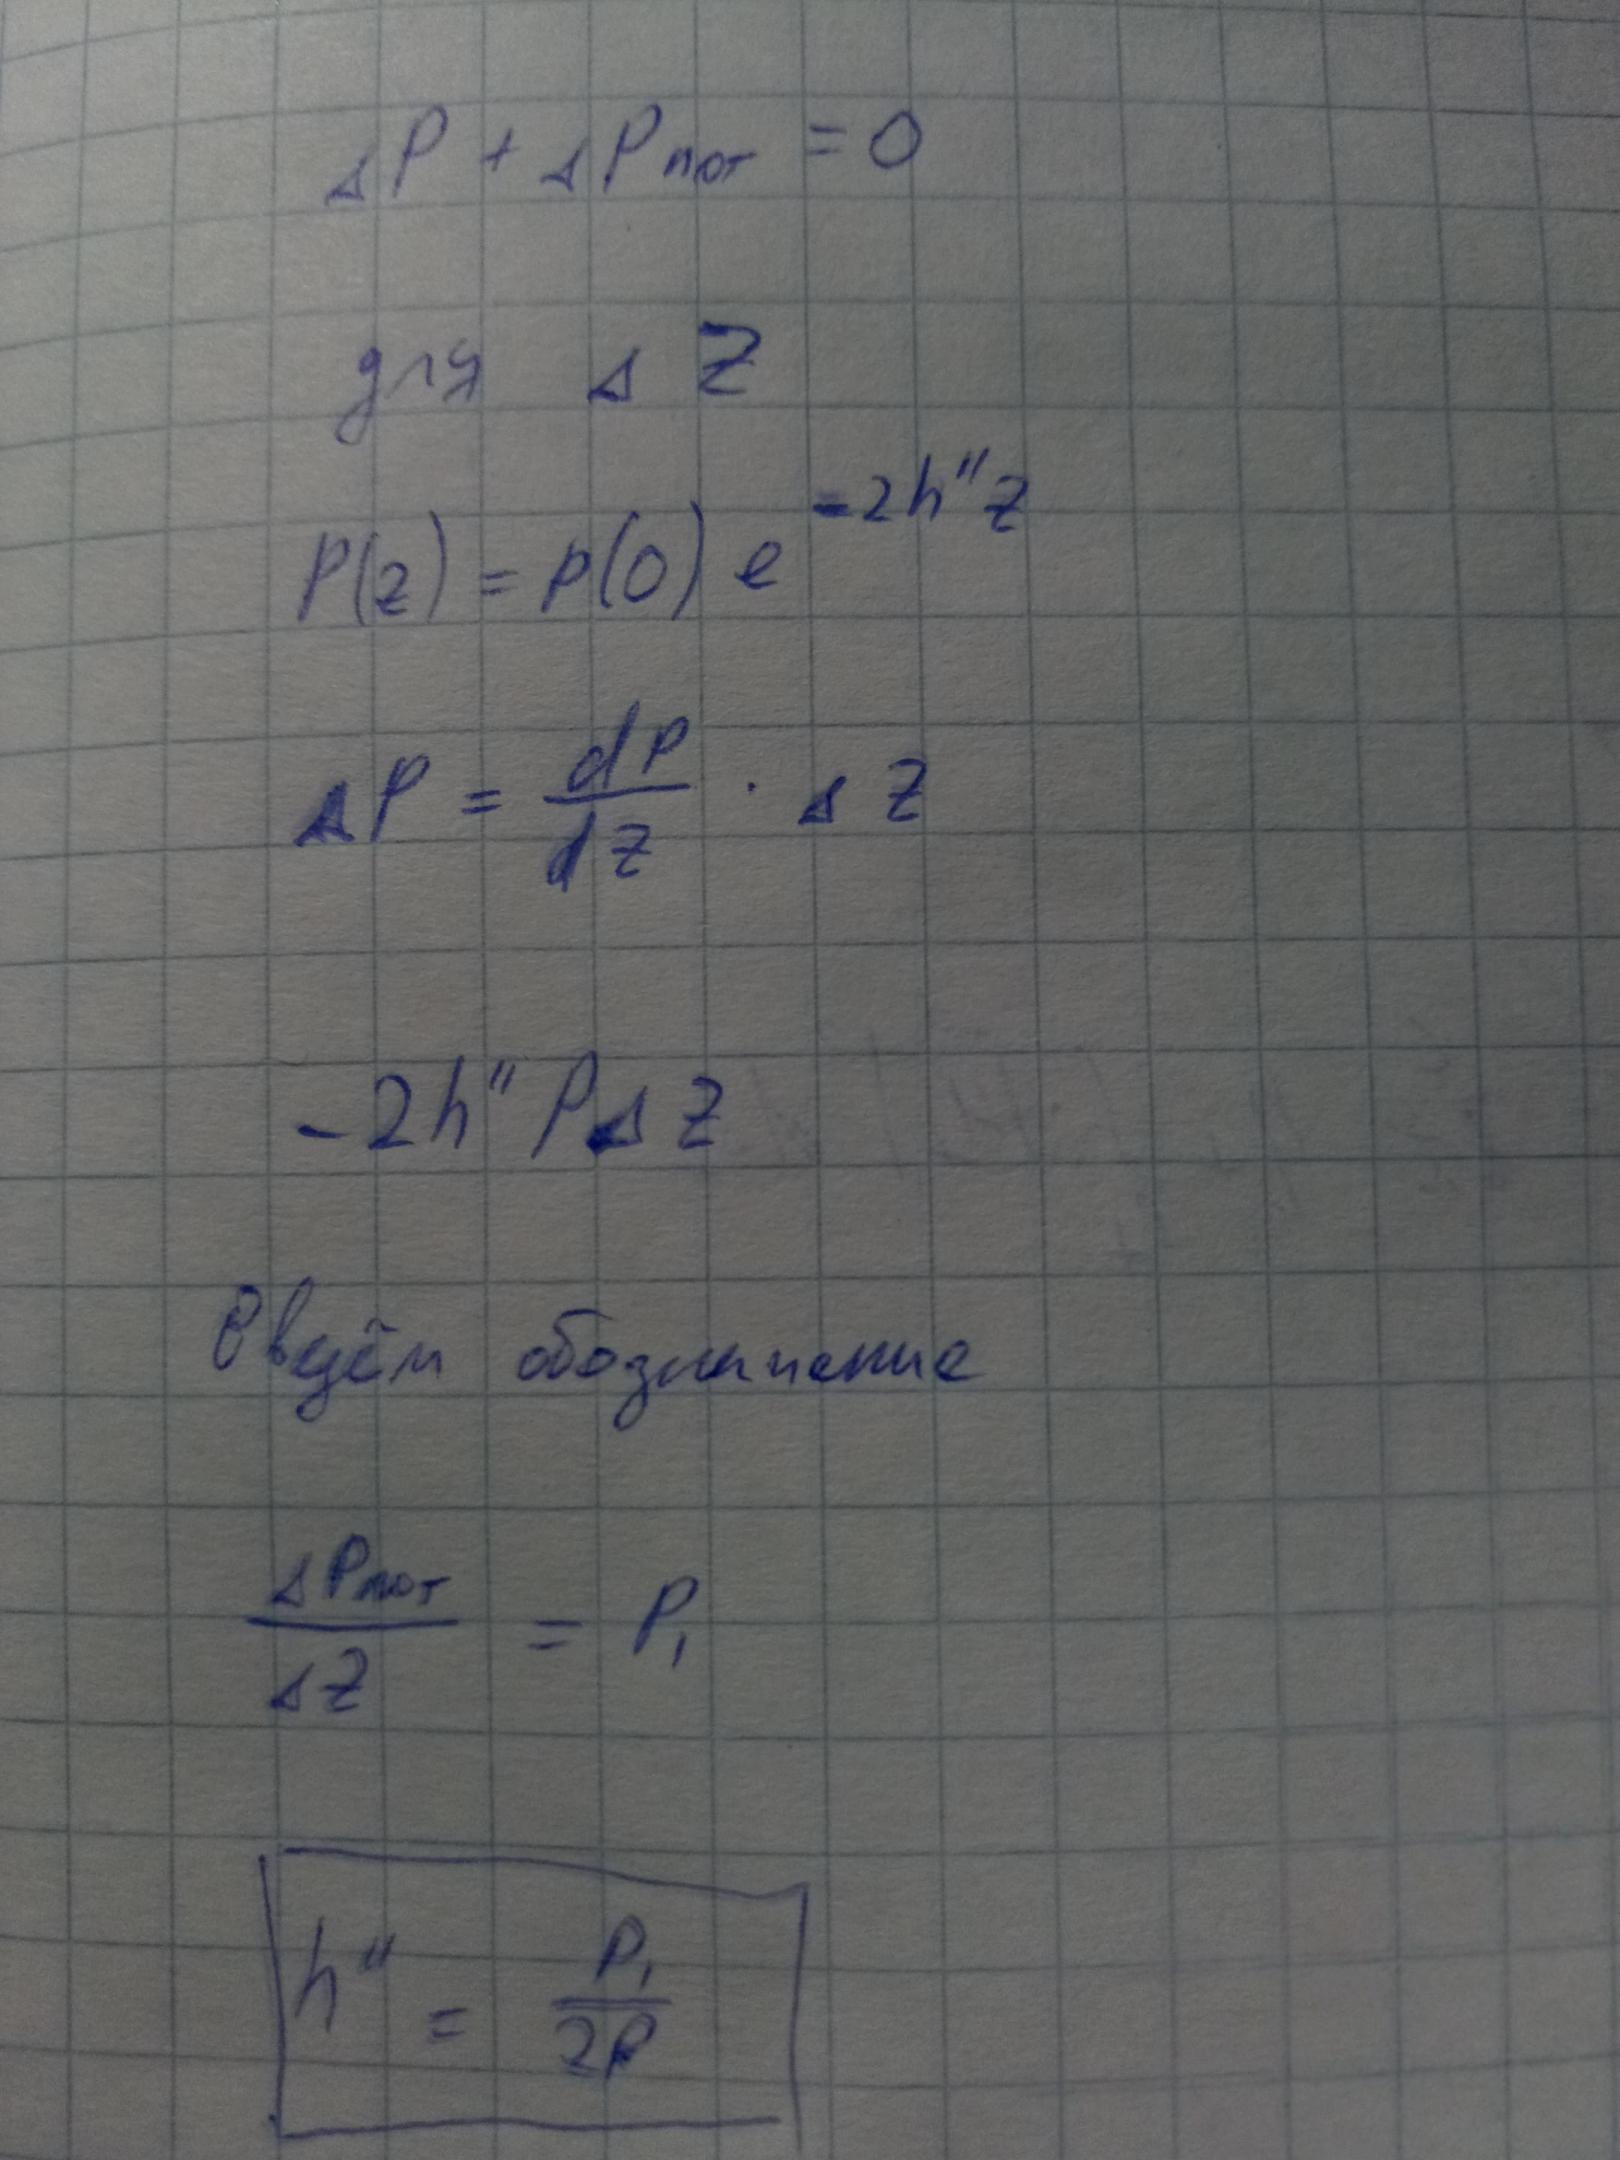 ΔP + ΔPпот = 0
для ΔZ
P(z) = P(0) e^{-2h''z}
ΔP = dP/dz · ΔZ
-2h'' P ΔZ
Введём обозначение
ΔPпот/ΔZ = P₁
h'' = P₁/2P